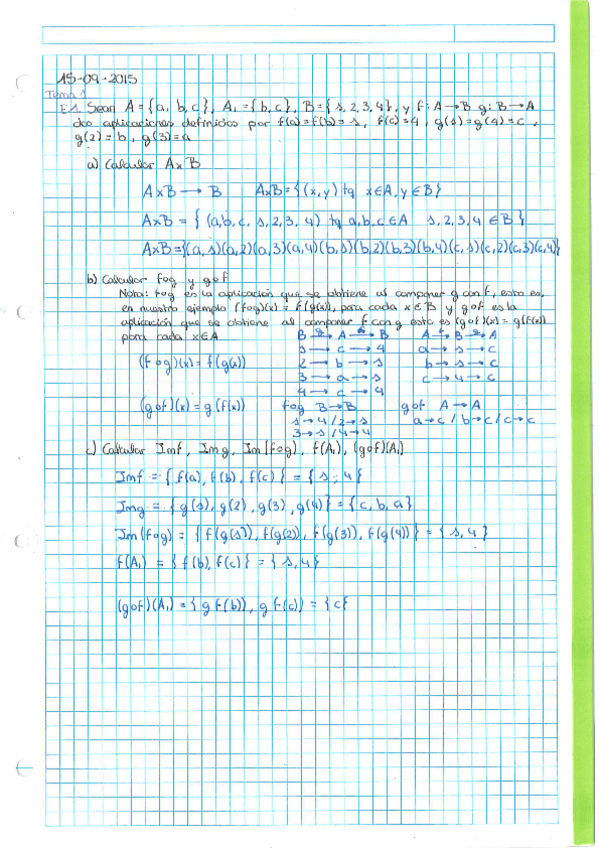 15-09-2015
Tema 1
E.1. Sean A = {a, b, c}, A₁ = {b, c}, B = {1, 2, 3, 4}, y f: A → B g: B → A
dos aplicaciones definidas por f(a) = f(b) = 1, f(c) = 4, g(1) = g(4) = c,
g(2) = b, g(3) = a
a) Calcular A x B
A x B → B AxB = {(x, y) tq x ∈ A, y ∈ B}
AxB = { (a, b, c, 1, 2, 3, 4) tq a, b, c ∈ A 1, 2, 3, 4 ∈ B}
AxB = {(a,1)(a,2)(a,3)(a,4)(b,1)(b,2)(b,3)(b,4)(c,1)(c,2)(c,3)(c,4)}
b) Calcular fog y gof
Nota: fog es la aplicación que se obtiene al componer g con f, esto es,
en nuestro ejemplo (fog)(x) = f(g(x)), para cada x ∈ B y gof es la
aplicación que se obtiene al componer f con g esto es (gof)(x) = g(f(x))
para cada x ∈ A
B g→ A f→ B A f→ B g→ A
1 → c → 4 a → 1 → c
(fog)(x) = f(g(x)) 2 → b → 1 b → 1 → c
3 → a → 1 c → 4 → c
4 → c → 4
(gof)(x) = g(f(x)) fog B → B gof A → A
1 → 4 / 2 → 1 a → c / b → c / c → c
3 → 1 / 4 → 4
c) Calcular Imf, Img, Im(fog), f(A₁), (gof)(A₁)
Imf = {f(a), f(b), f(c)} = {1, 4}
Img = {g(1), g(2), g(3), g(4)} = {c, b, a}
Im(fog) = {f(g(1)), f(g(2)), f(g(3)), f(g(4))} = {1, 4}
f(A₁) = {f(b), f(c)} = {1, 4}
(gof)(A₁) = {g f(b)), g f(c)) = {c}